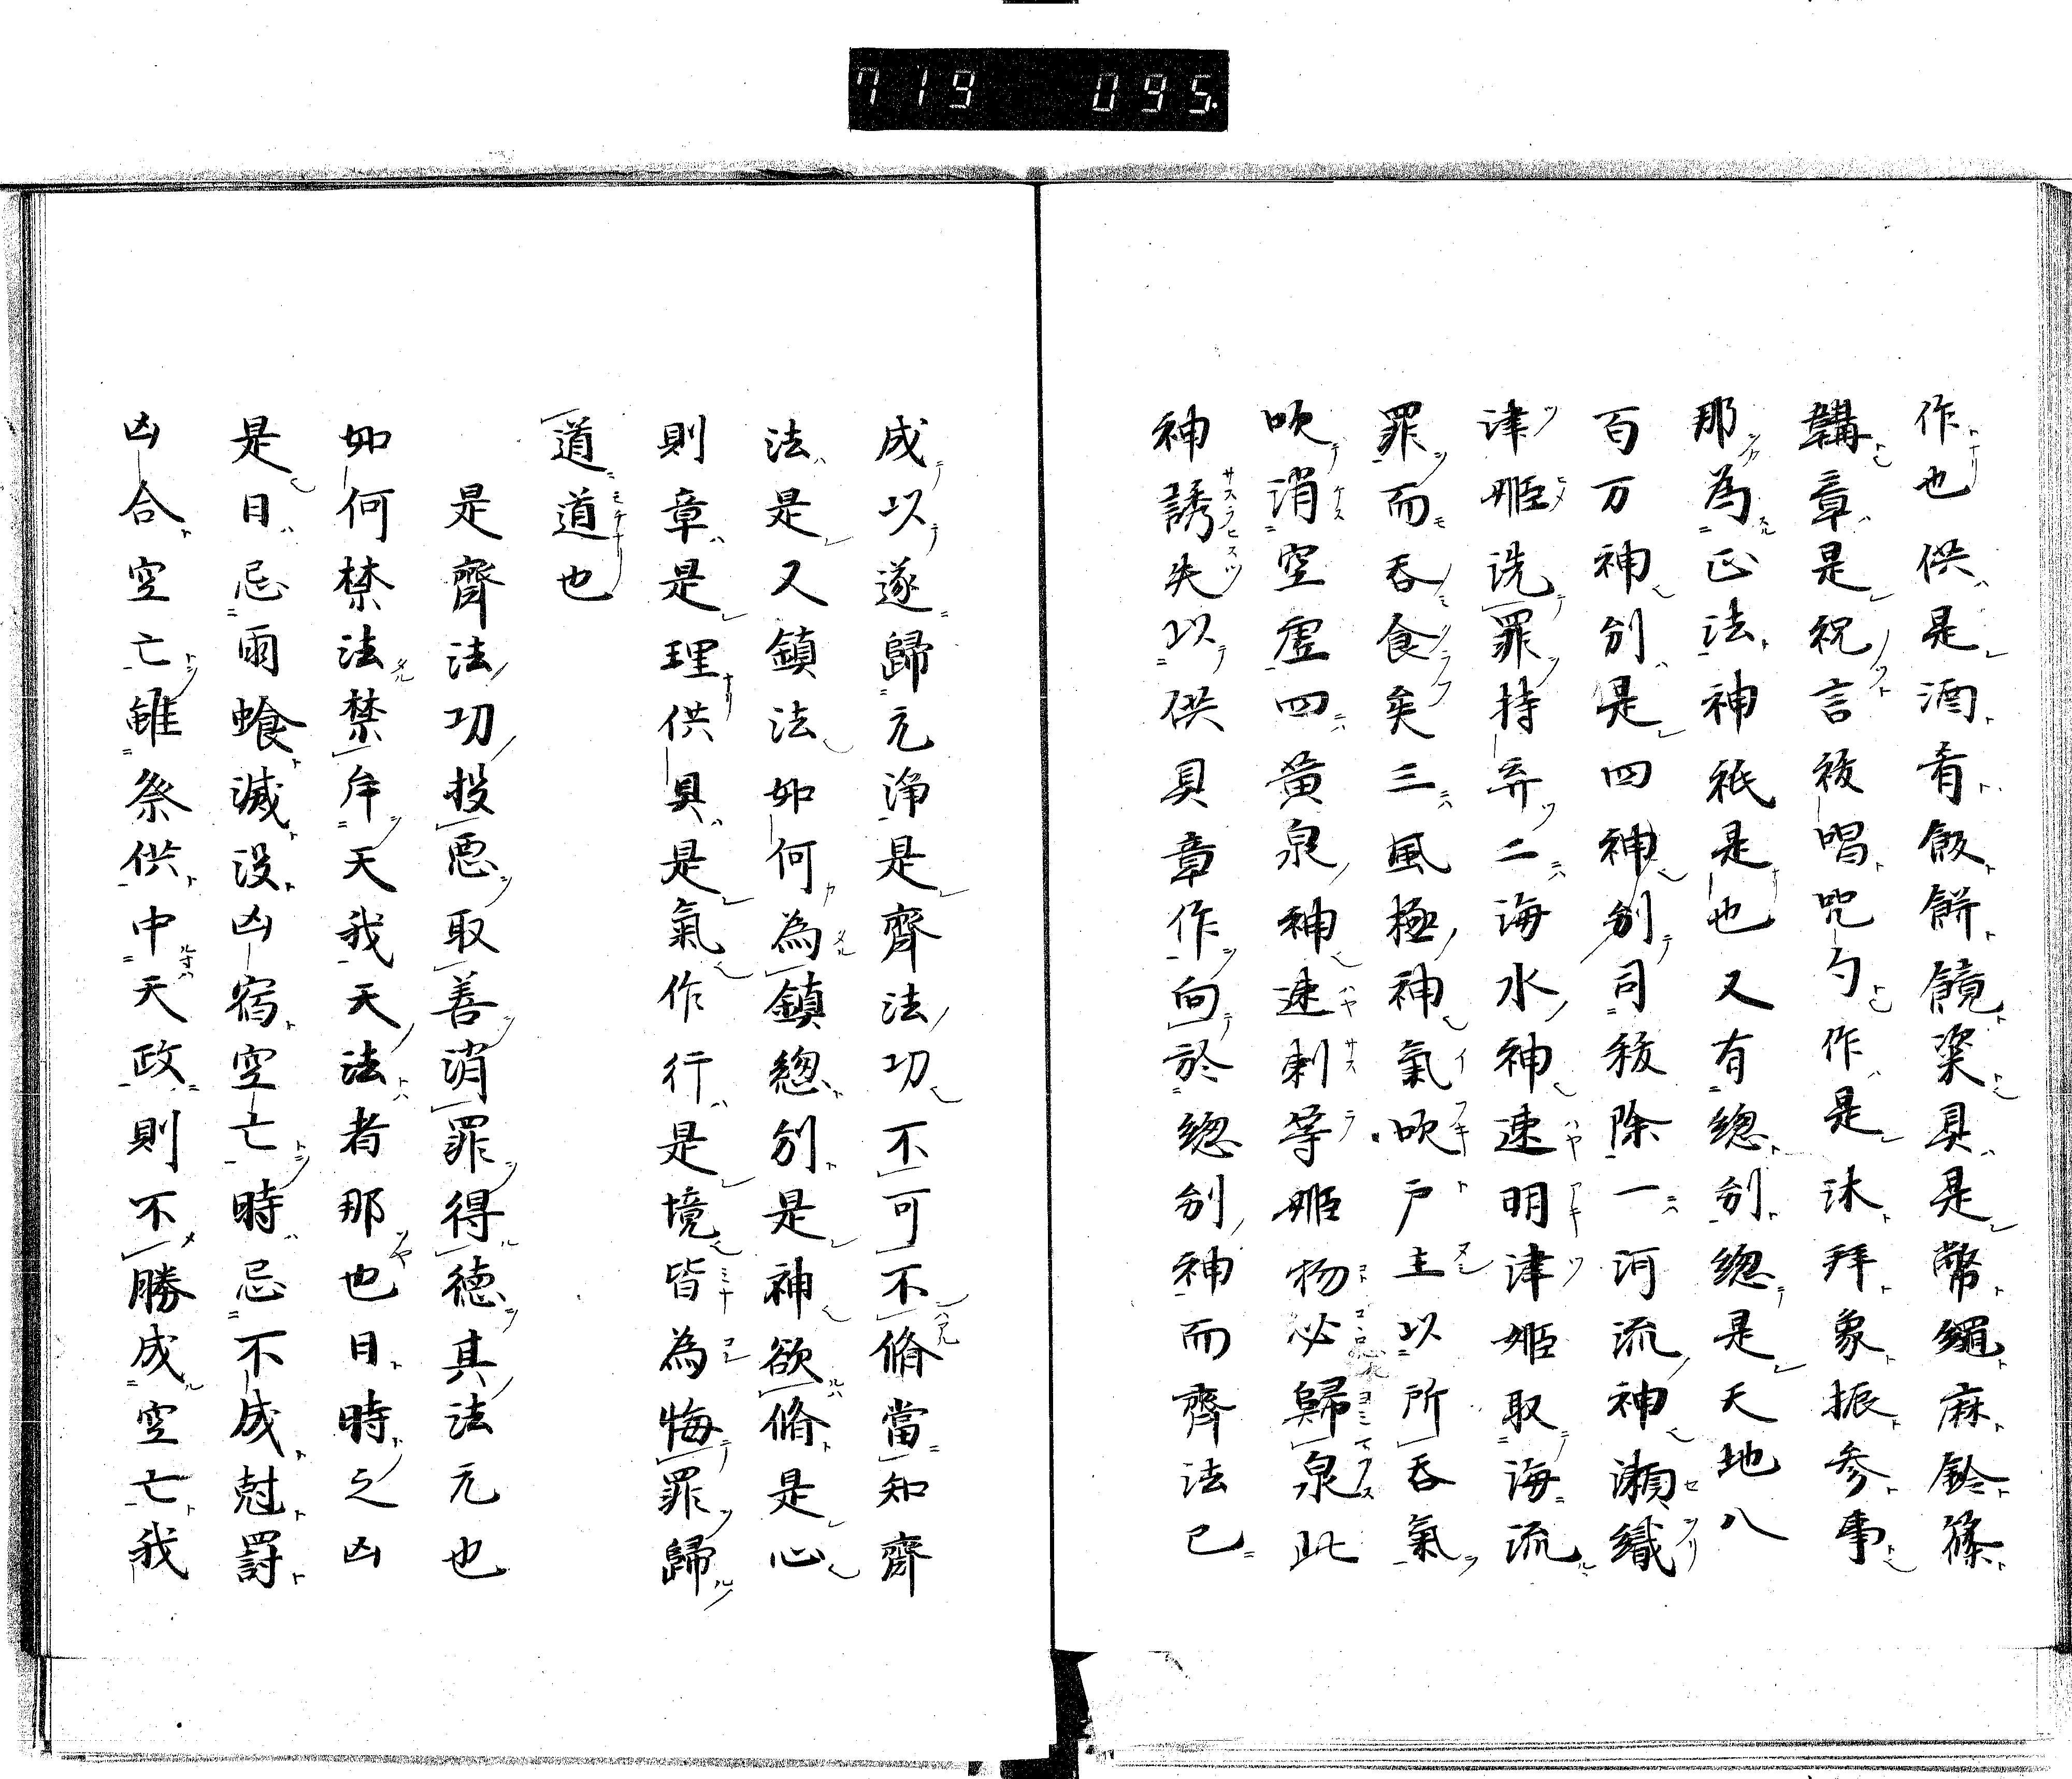 719 095.
作也供是酒肴飯餅鏡粢具是幣繩麻鈴篠
韛章是祝言祓唱咒勺作是沐拜象振参事
那為正法神祇是也又有總別總是天地八
百万神別是四神別司祓除一河流神瀬織
津姬洗罪持弃二海水神速明津姬取海流
罪而呑食矣三風極神氣吹戸主以所呑氣
吹消空虚四黄泉神速刺等姬物必歸泉此
神誘失以供具章作向於總別神而齊法已
成以遂歸元浄是齊法功不可不脩當知齊
法是又鎮法如何為鎮總別是神欲脩是心
則章是理供具是氣作行是境皆為悔罪歸
道道也
是齊法功投悪取善消罪得徳其法元也
如何禁法禁牟天我天法者那也日時之凶
是日忌雨喰滅没凶宿空亡時忌不成尅罸
凶合空亡雖祭供中天政則不勝成空亡我